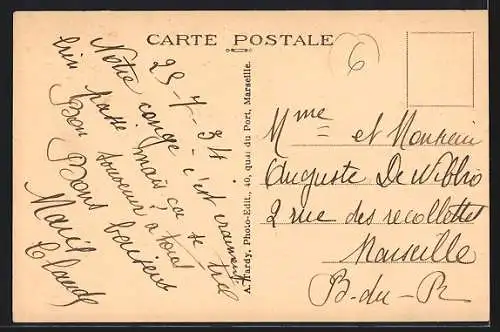 CARTE POSTALE
6
25-7-34
Notre congé c'est vraiment
bien passé mais ça se tire
Bon souvenir à tous
Bons baisers
Marie
Claude
A. Tardy, Photo-Edit., 40, quai du Port, Marseille.
Mme et Monsieur
Auguste De
2 rue des recollettes
Marseille
B-du-R